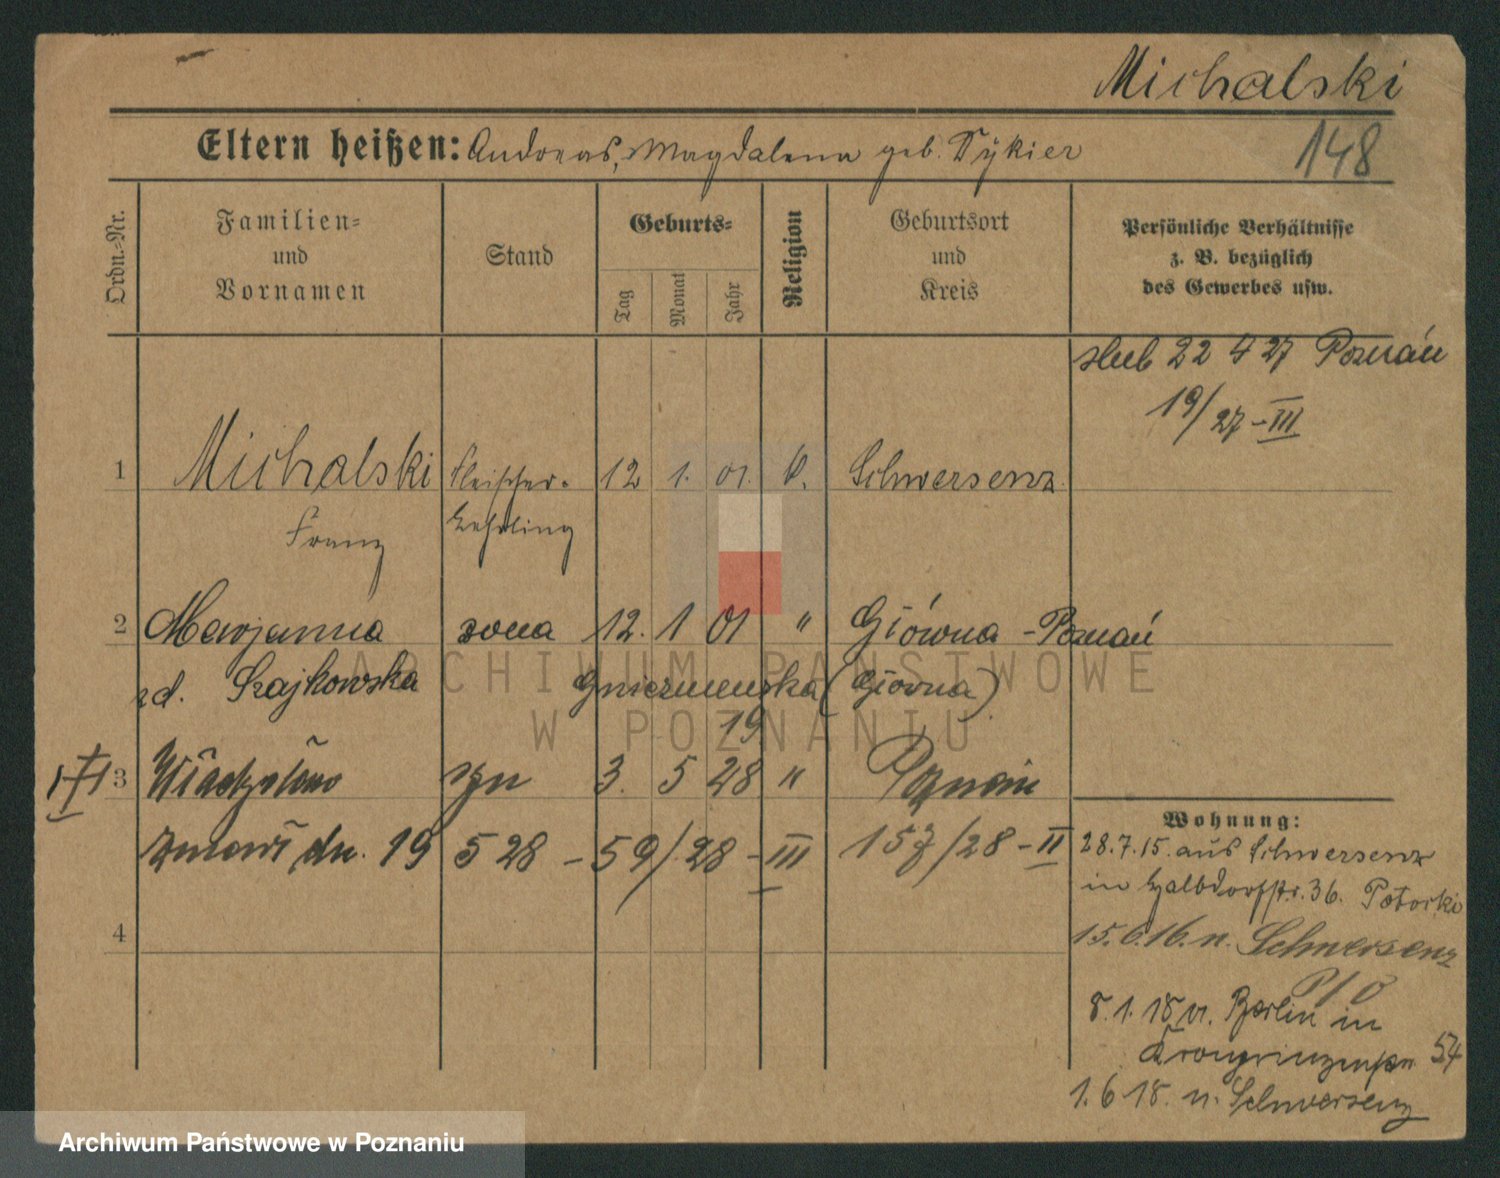 Michalski
148
Eltern heißen: Andreas, Magdalena geb. Tykier
Ordn.-Nr.
Familien-
und
Vornamen
Stand
Geburts-
Tag
Monat
Jahr
Religion
Geburtsort
und
Kreis
Persönliche Verhältnisse
z. B. bezüglich
des Gewerbes usw.
ślub 22 4 27 Poznań
19/27-III
1 Michalski Fleischer- 12 1. 01. Schwersenz
Franz Lehrling
2 Marjanna żona 12. 1 01 " Główna - Poznań
zd. Szajkowska (Główna)
19
3 Władysław syn 3. 5 28 " Poznań
zmarł dn. 19 5 28 - 59/28 - III 157/28 - II
4
Wohnung:
28.7.15. aus Schwersenz
in Halbdorfstr. 36. Potocki
15.6.16. n. Schwersenz
8.1.18 v. Berlin in
Kronprinzenstr 54
1.6.18. n. Schwersenz
ARCHIWUM PAŃSTWOWE
W POZNANIU
Archiwum Państwowe w Poznaniu